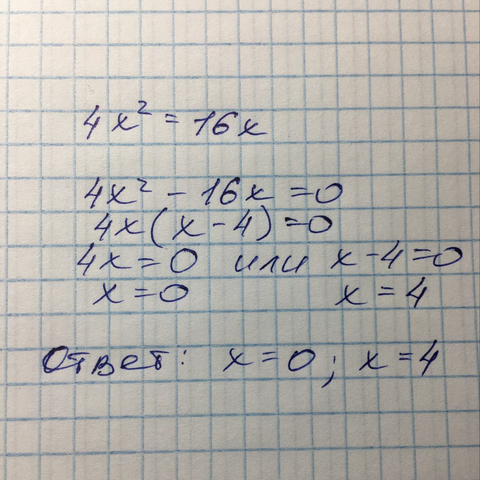 4x² = 16x
4x² - 16x = 0
4x(x - 4) = 0
4x = 0 или x - 4 = 0
x = 0 x = 4
Ответ: x = 0; x = 4